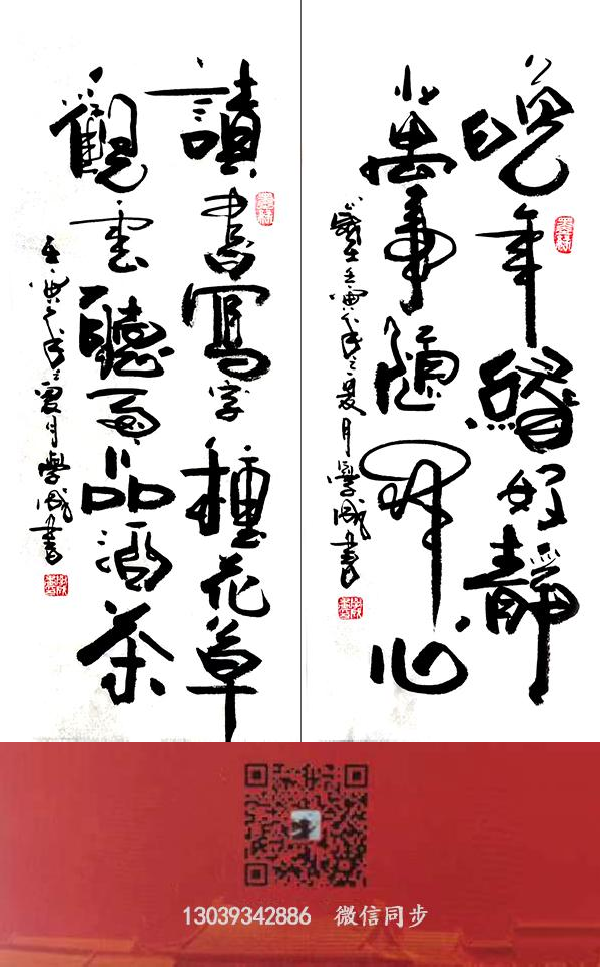 晚年好靜
萬事隨心
歲在壬寅年之夏月學書
讀書寫字種花草
觀雲聽雨品酒茶
壬寅年之夏月學書
13039342886 微信同步